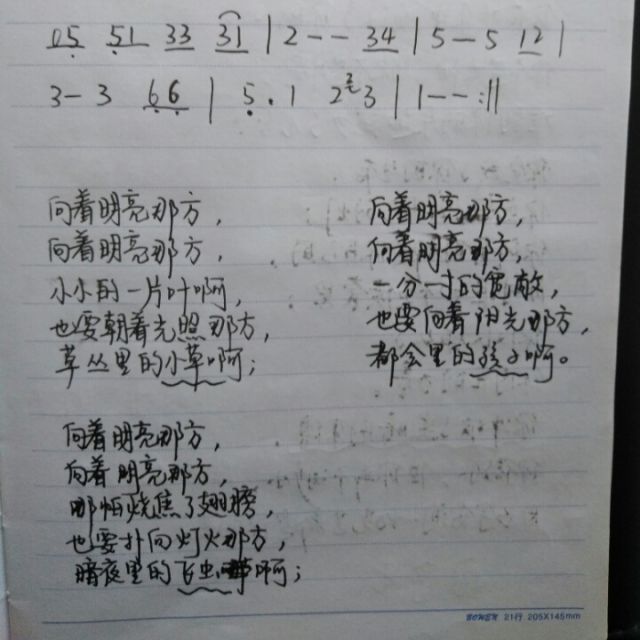 05 51 33 31 | 2 - - 34 | 5 - 5 12 |
3 - 3 66 | 5 . 1 2 3 3 | 1 - - :||
向着明亮那方,
向着明亮那方,
小小的一片叶啊,
也要朝着光照那方,
草丛里的小草啊;
向着明亮那方,
向着明亮那方,
一分一寸的宽敞,
也要向着阳光那方,
都会里的孩子啊。
向着明亮那方,
向着明亮那方,
哪怕烧焦了翅膀,
也要扑向灯火那方,
暗夜里的飞虫啊;
21行 205X145mm